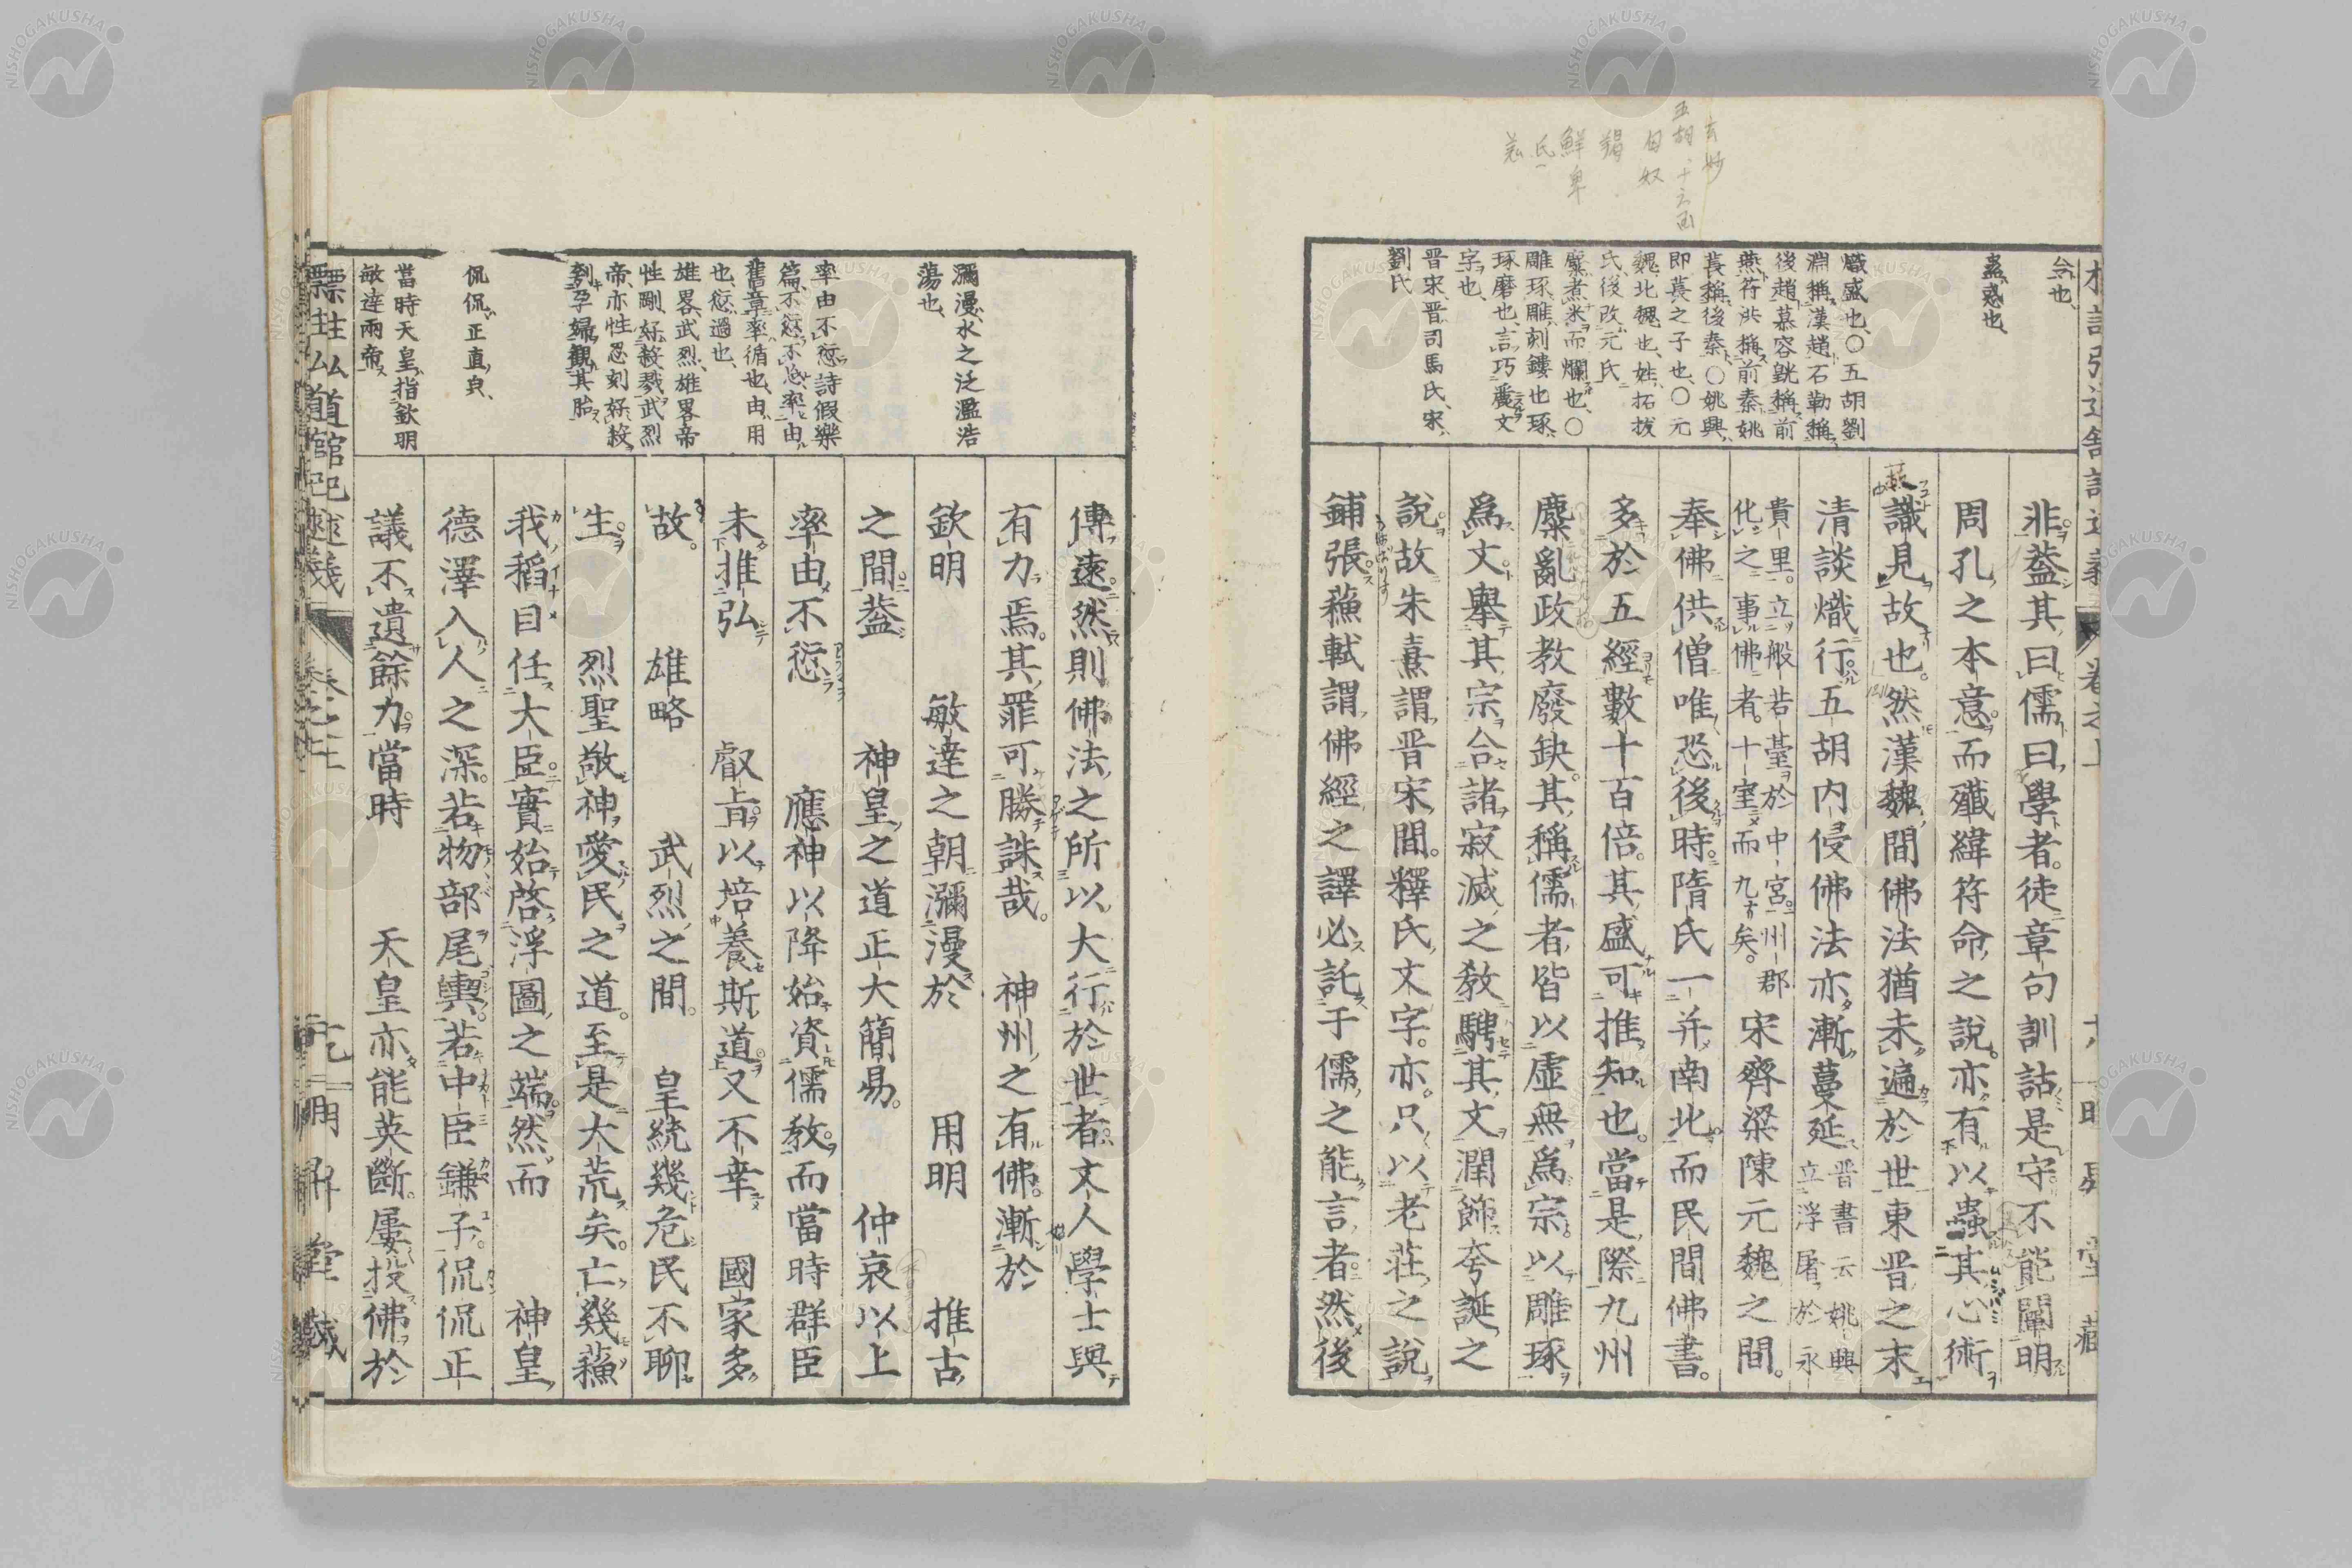 五胡、十六国
匈奴
羯
鮮卑
氐
羌
蠱、惑也、
熾盛也、○五胡劉
淵稱漢、趙石勒稱
後趙、慕容皝稱前
燕、苻洪稱前秦、姚
萇稱後秦、○姚興、
即萇之子也、○元
魏、北魏也、姓拓拔
氏、後改元氏、
糜、煮米而爛也、○
雕琢、雕刻鏤也、琢、
琢磨也、言巧麗文
字也、
晋宋、晋司馬氏、宋、
劉氏
非。蓋其曰儒曰學者。徒章句訓詁是守。不能闡明
周孔之本意。而讖緯符命之說。亦有以蟲其心術
識見故也。然漢魏間佛法猶未遍於世。東晋之末
清談熾行。五胡內侵。佛法亦漸蔓延。晋書云姚興立浮屠於永
貴里。立般若臺於中宮。州郡化之。事佛者。十室而九矣。宋齊梁陳元魏之間。
奉佛供僧。唯恐後時。隋氏一并南北。而民間佛書。
多於五經數十百倍。其盛可推知也。當是際九州
糜亂。政教廢缺。其稱儒者皆以虛無為宗。以雕琢
為文。舉其宗合諸寂滅之教。騁其文潤飾夸誕之
說。故朱熹謂晋宋間。釋氏文字。亦只以老莊之說
鋪張。蘓軾謂佛經之譯必託于儒之能言者。然後
傳遠。然則佛法之所以大行於世者。文人學士與
有力焉。其罪可勝誅哉。神州之有佛。漸於
欽明 敏達之朝。瀰漫於 用明 推古
之間。蓋 神皇之道正大簡易。 仲哀以上
率由不愆 應神以降始資儒教。而當時群臣
未推弘 叡旨以培養斯道。又不幸 國家多
故。雄略 武烈之間。 皇統幾危民不聊
生。烈聖敬神愛民之道。至是大荒矣。亡幾蘓
我稻目任大臣。實始啓浮圖之端。然而 神皇
德澤入人之深。若物部尾輿。若中臣鎌子。侃侃正
議不遺餘力。當時 天皇亦能英斷。屢投佛於
瀰漫、水之泛濫浩
蕩也、
率由不愆、詩假樂
篇、不愆不忘、率由
舊章、率循也、由用
也、愆過也、
雄畧武烈、雄畧帝
性剛、好殺戮、武烈
帝亦性忍刻、好殺、
刳孕婦、觀其胎、
侃侃、正直皃、
當時天皇、指欽明
敏達兩帝、
標註弘道館記述義 卷之上